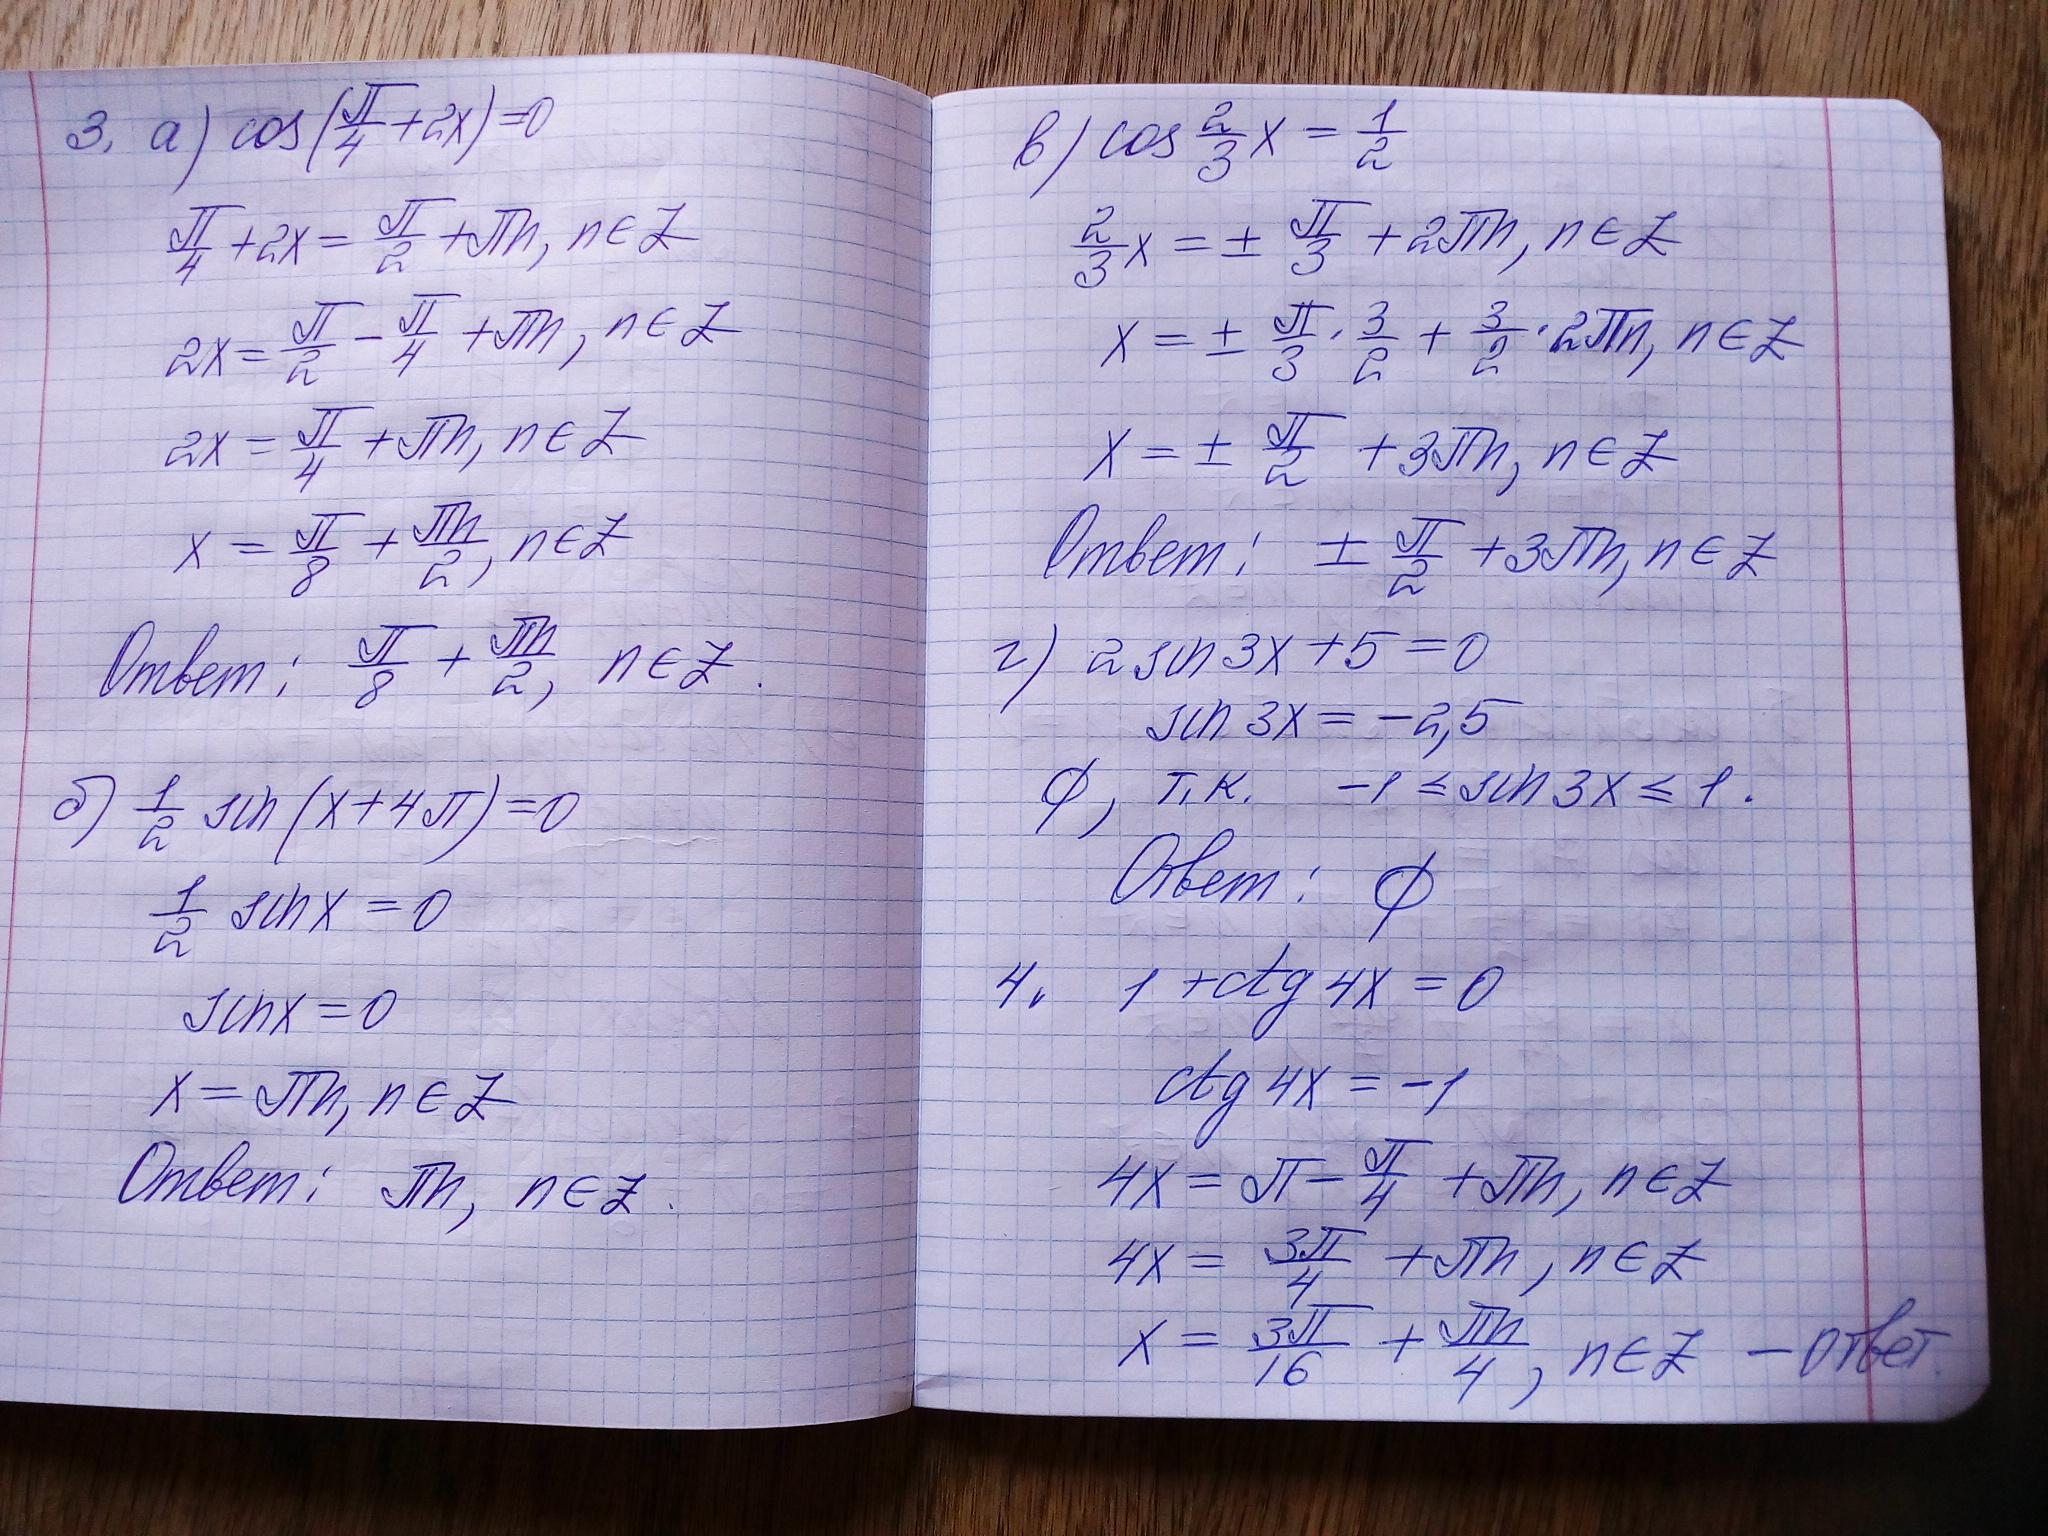 3. а) cos(π/4 + 2x) = 0
π/4 + 2x = π/2 + πn, n ∈ Z
2x = π/2 - π/4 + πn, n ∈ Z
2x = π/4 + πn, n ∈ Z
x = π/8 + πn/2, n ∈ Z
Ответ: π/8 + πn/2, n ∈ Z.
б) 1/2 sin(x + 4π) = 0
1/2 sin x = 0
sin x = 0
x = πn, n ∈ Z
Ответ: πn, n ∈ Z.
в) cos 2/3 x = 1/2
2/3 x = ± π/3 + 2πn, n ∈ Z
x = ± π/3 · 3/2 + 3/2 · 2πn, n ∈ Z
x = ± π/2 + 3πn, n ∈ Z
Ответ: ± π/2 + 3πn, n ∈ Z
г) 2 sin 3x + 5 = 0
sin 3x = -2,5
∅, т.к. -1 ≤ sin 3x ≤ 1.
Ответ: ∅
4. 1 + ctg 4x = 0
ctg 4x = -1
4x = π - π/4 + πn, n ∈ Z
4x = 3π/4 + πn, n ∈ Z
x = 3π/16 + πn/4, n ∈ Z - ответ.